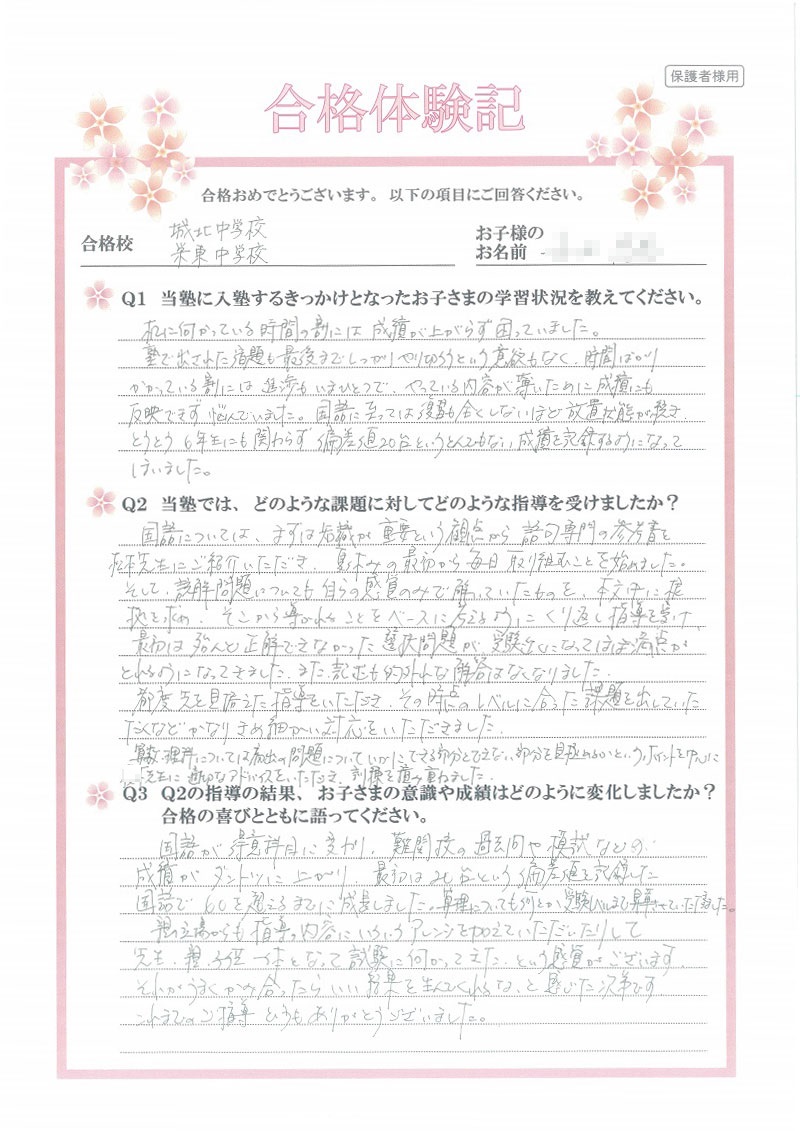 保護者様用
合格体験記
合格おめでとうございます。以下の項目にご回答ください。
合格校
城北中学校
栄東中学校
お子様の
お名前
Q1 当塾に入塾するきっかけとなったお子さまの学習状況を教えてください。
机に向かっている時間の割には成績が上がらず困っていました。
塾で出された宿題も最後までしっかりやりきろうという意欲もなく、時間ばかり
かかっている割には進歩もいまひとつで、やっている内容が薄いために成績にも
反映できず悩んでいました。国語に至っては復習も全くしないほど放置状態が続き
とうとう6年生にも関わらず偏差値20台というとんでもない成績を記録するようになって
しまいました。
Q2 当塾では、どのような課題に対してどのような指導を受けましたか？
国語については、まずは知識が重要という観点から語句専門の参考書を
松本先生にご紹介いただき、夏休みの最初から毎日取り組むことを始めました。
そして、読解問題についても自らの感覚のみで解いていたものを、本文中に根
拠を求め、そこから導かれることをベースに考えるようにくり返し指導を受け
最初は殆んど正解できなかった選択問題が、受験近くになってほぼ満点が
とれるようになってきました。また、記述も的外れな解答はなくなりました。
都度先を見据えた指導をいただき、その時点のレベルに合った課題を出していた
だくなどかなりきめ細かい対応をいただきました。
算数、理科については頻出の問題についていかにできる部分とできない部分を見極めるかというポイントを中心に
先生に適切なアドバイスをいただき、訓練を積み重ねました。
Q3 Q2の指導の結果、お子さまの意識や成績はどのように変化しましたか？
合格の喜びとともに語ってください。
国語が得意科目に変わり、難関校の過去問や模試などの
成績がダントツに上がり、最初は20台という偏差値を記録した
国語で60を超えるまでに成長しました。算理についても何とか受験レベルまで昇華させていただきました。
親の立場からも指導の内容にいろいろアレンジを加えていただいたりして
先生、親、子供一体となって試験に向かってきた、という感覚がございます。
それがうまくかみ合ったらいい結果を生んでくれるな、と感じた次第です
これまでのご指導どうもありがとうございました。